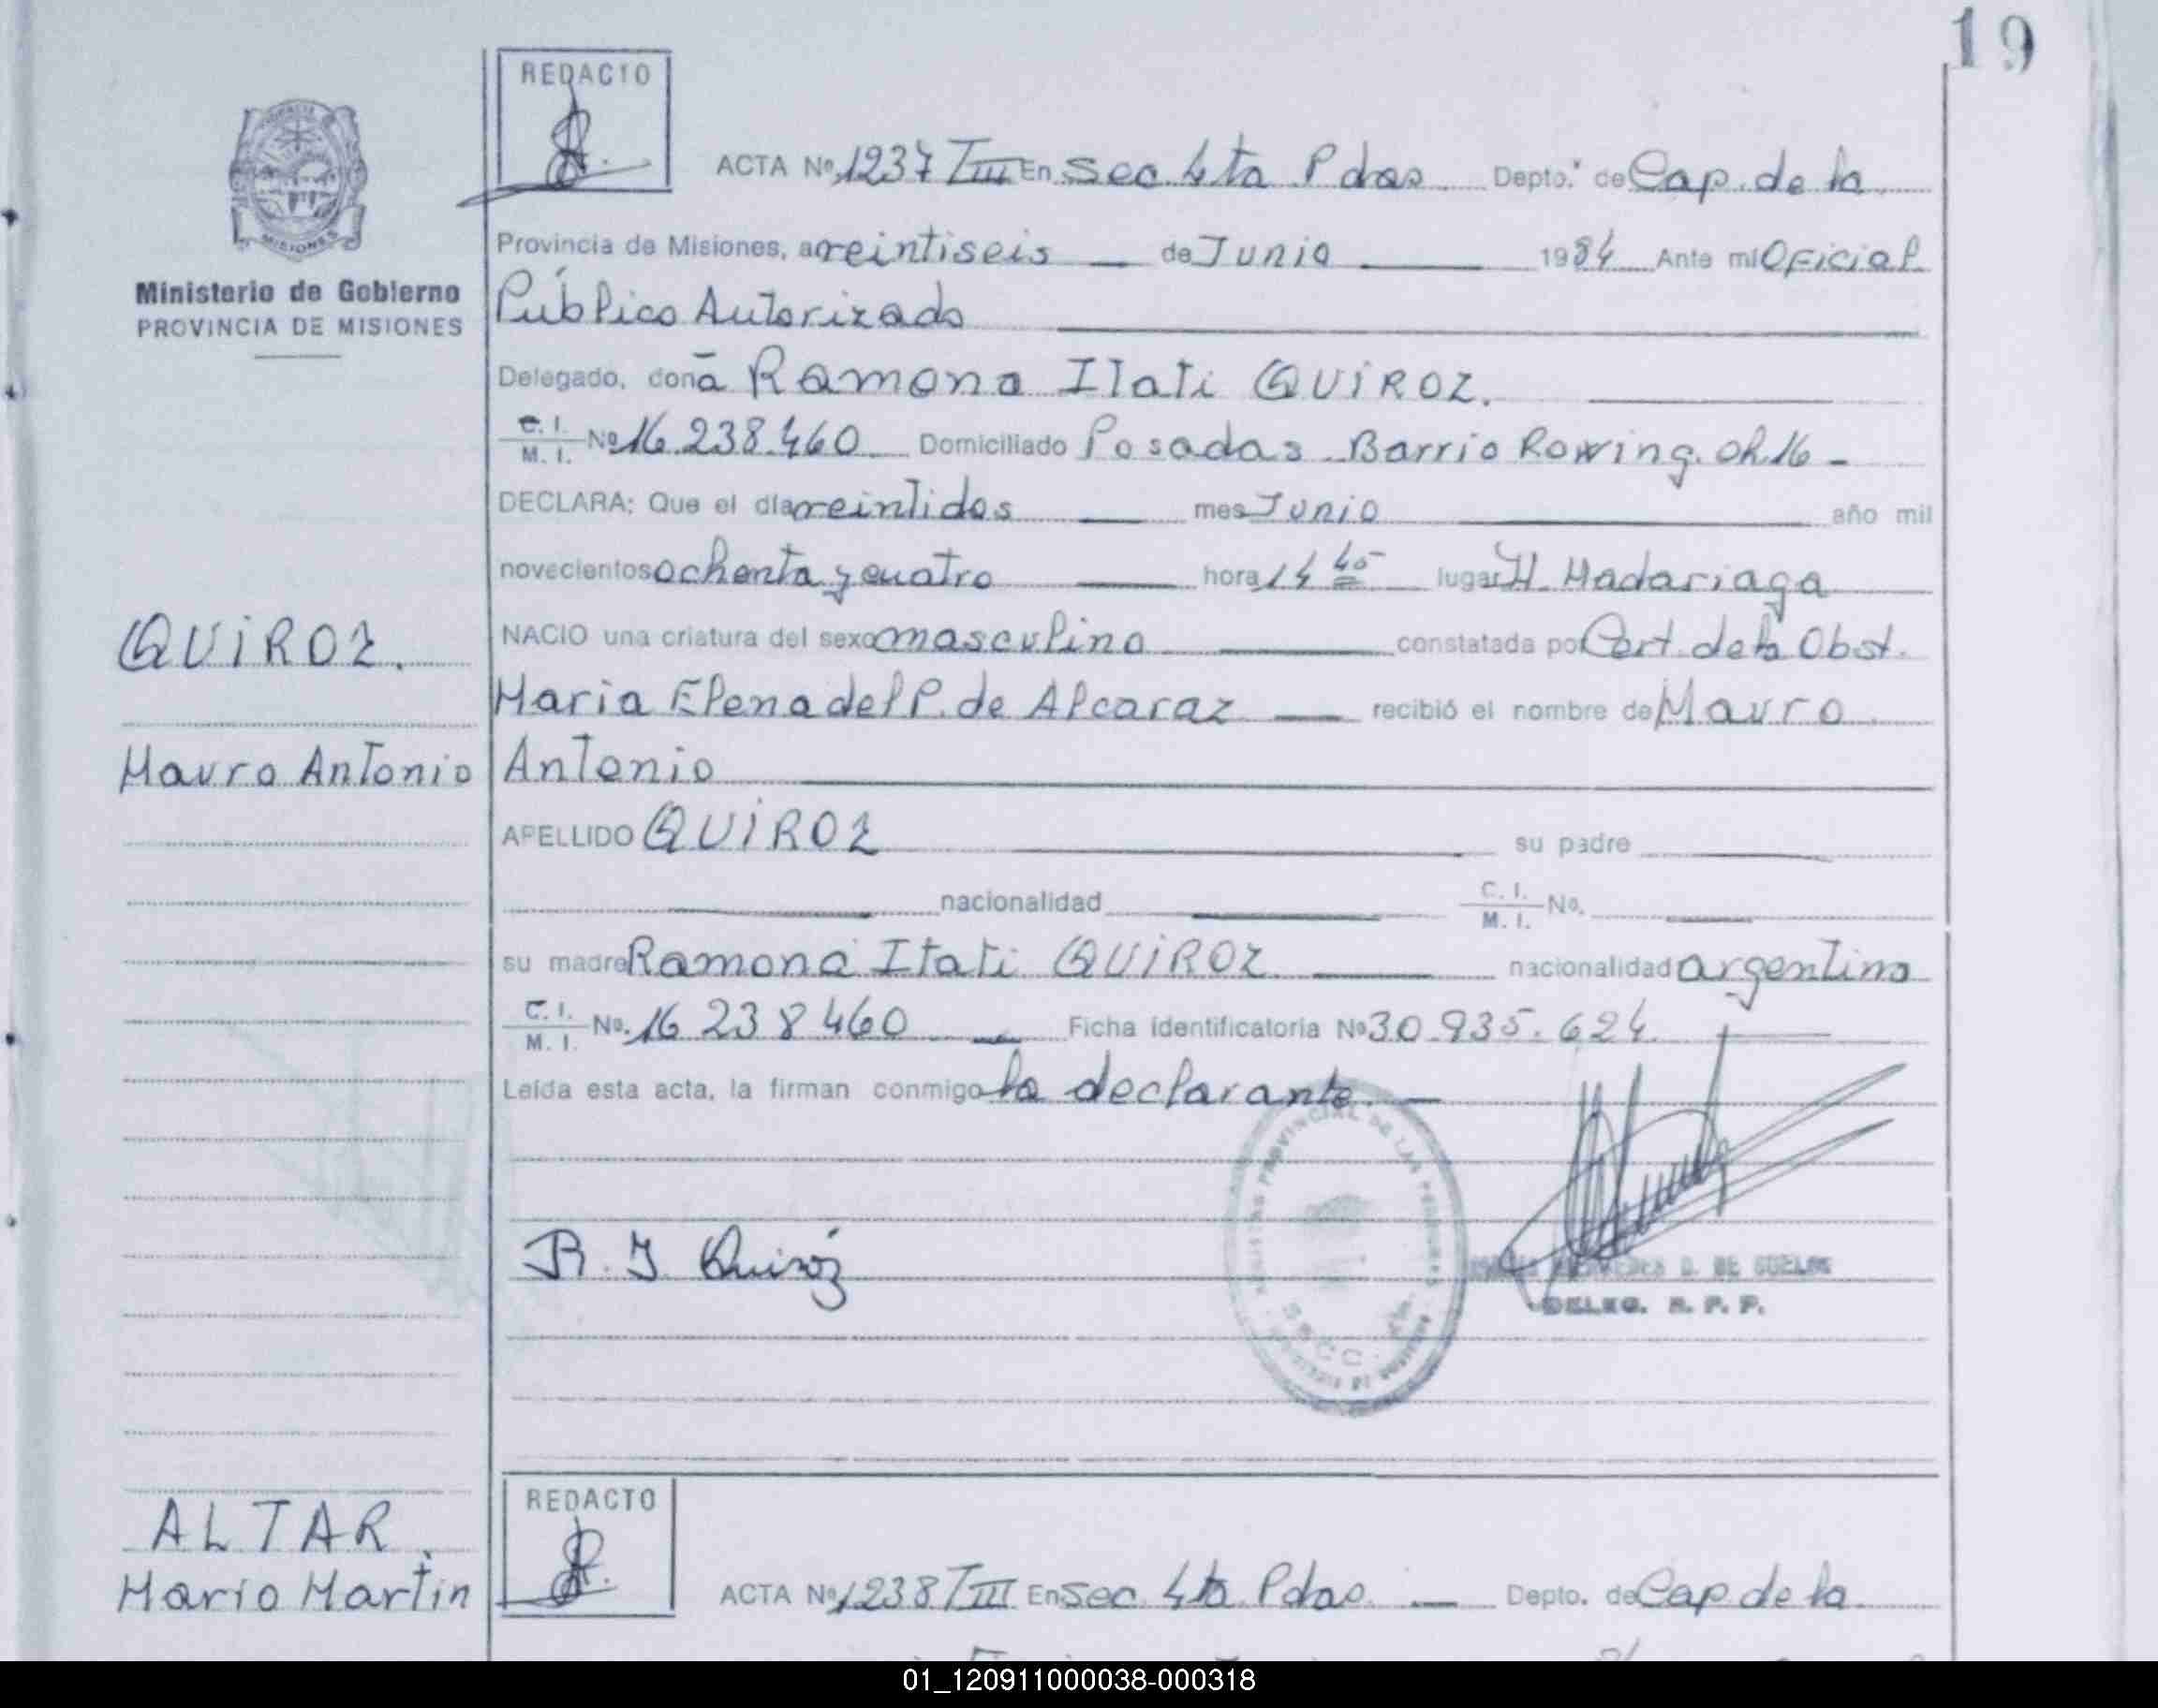 19
REDACTO
PROVINCIA
MISIONES
Ministerio de Gobierno
PROVINCIA DE MISIONES
ACTA Nº 1237 TIII En Sec. 4ta Pdas. Depto. de Cap. de la
Provincia de Misiones, a veintiseis de Junio 1984 Ante mi Oficial
Público Autorizado
Delegado, doña Ramona Itati QUIROZ.
C. I. M. I. Nº 16.238.460 Domiciliado Posadas Barrio Rowing. Ch.16 -
DECLARA: Que el día veintidos mes Junio año mil
novecientos ochenta y cuatro hora 14 40 lugar H. Madariaga
NACIO una criatura del sexo masculino constatada por Cert. de la Obst.
Maria Elena del P. de Alcaraz recibió el nombre de Mauro
QUIROZ.
Mauro Antonio
Antonio
APELLIDO QUIROZ su padre
nacionalidad C. I. M. I. No.
su madre Ramona Itati QUIROZ nacionalidad argentina
C. I. M. I. No. 16 238 460 Ficha identificatoria Nº 30.935.624
Leída esta acta, la firman conmigo la declarante.
R. I. Quiróz
PROVINCIAL DE LAS PERSONAS
D. DE
DELEG. R. P. P.
ALTAR.
Mario Martin
REDACTO
ACTA Nº 1238 TIII En Sec. 4ta Pdas. Depto. de Cap de la
01_120911000038-000318